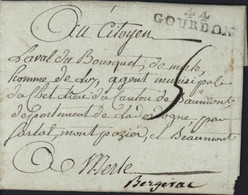 44
GOURDON
Au Citoyen
Laval du Bousquet, de merle,
homme de loy, agent municipal
du canton de Beaumont
département de la dordogne, par
montpazier, et Beaumont
A Merle
Bergerac